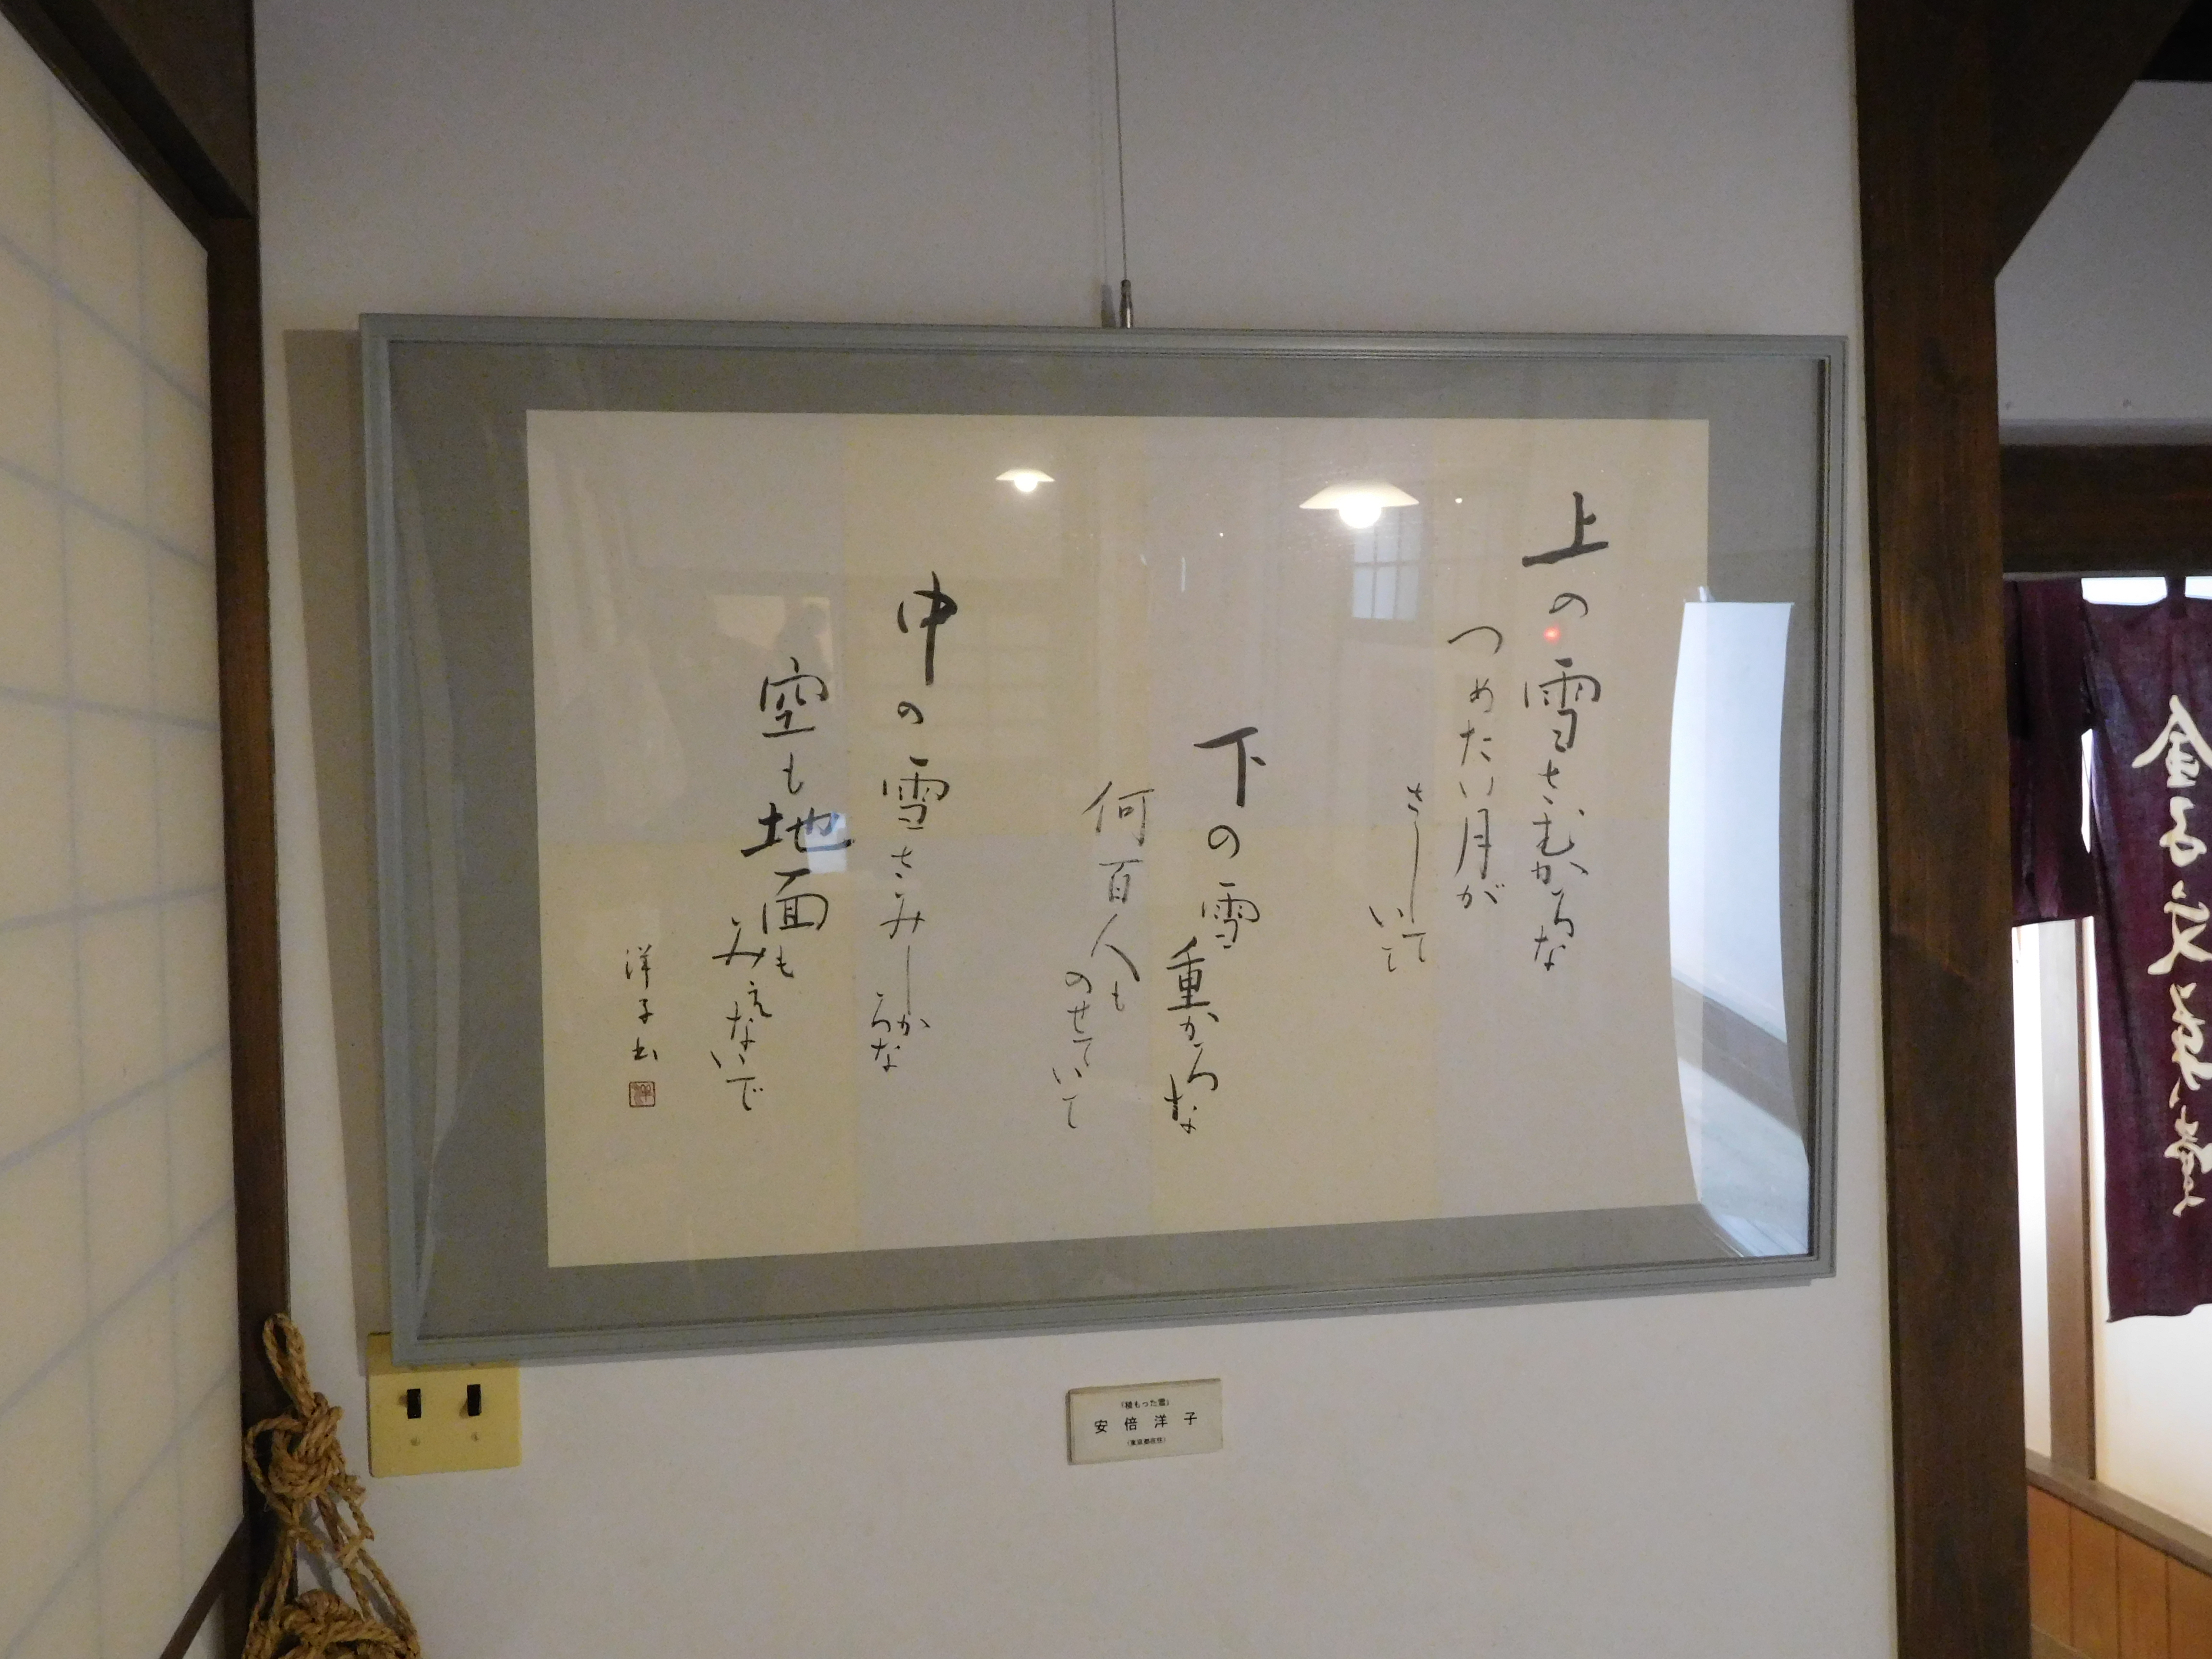 上の雪さむかろな
つめたい月が
さして
いて
下の雪
重かろな
何百人も
のせていて
中の雪さみしか
ろな
空も地面も
みえないで
洋子書
(積もった雪)
安倍洋子
(東京都在住)
金子文英堂